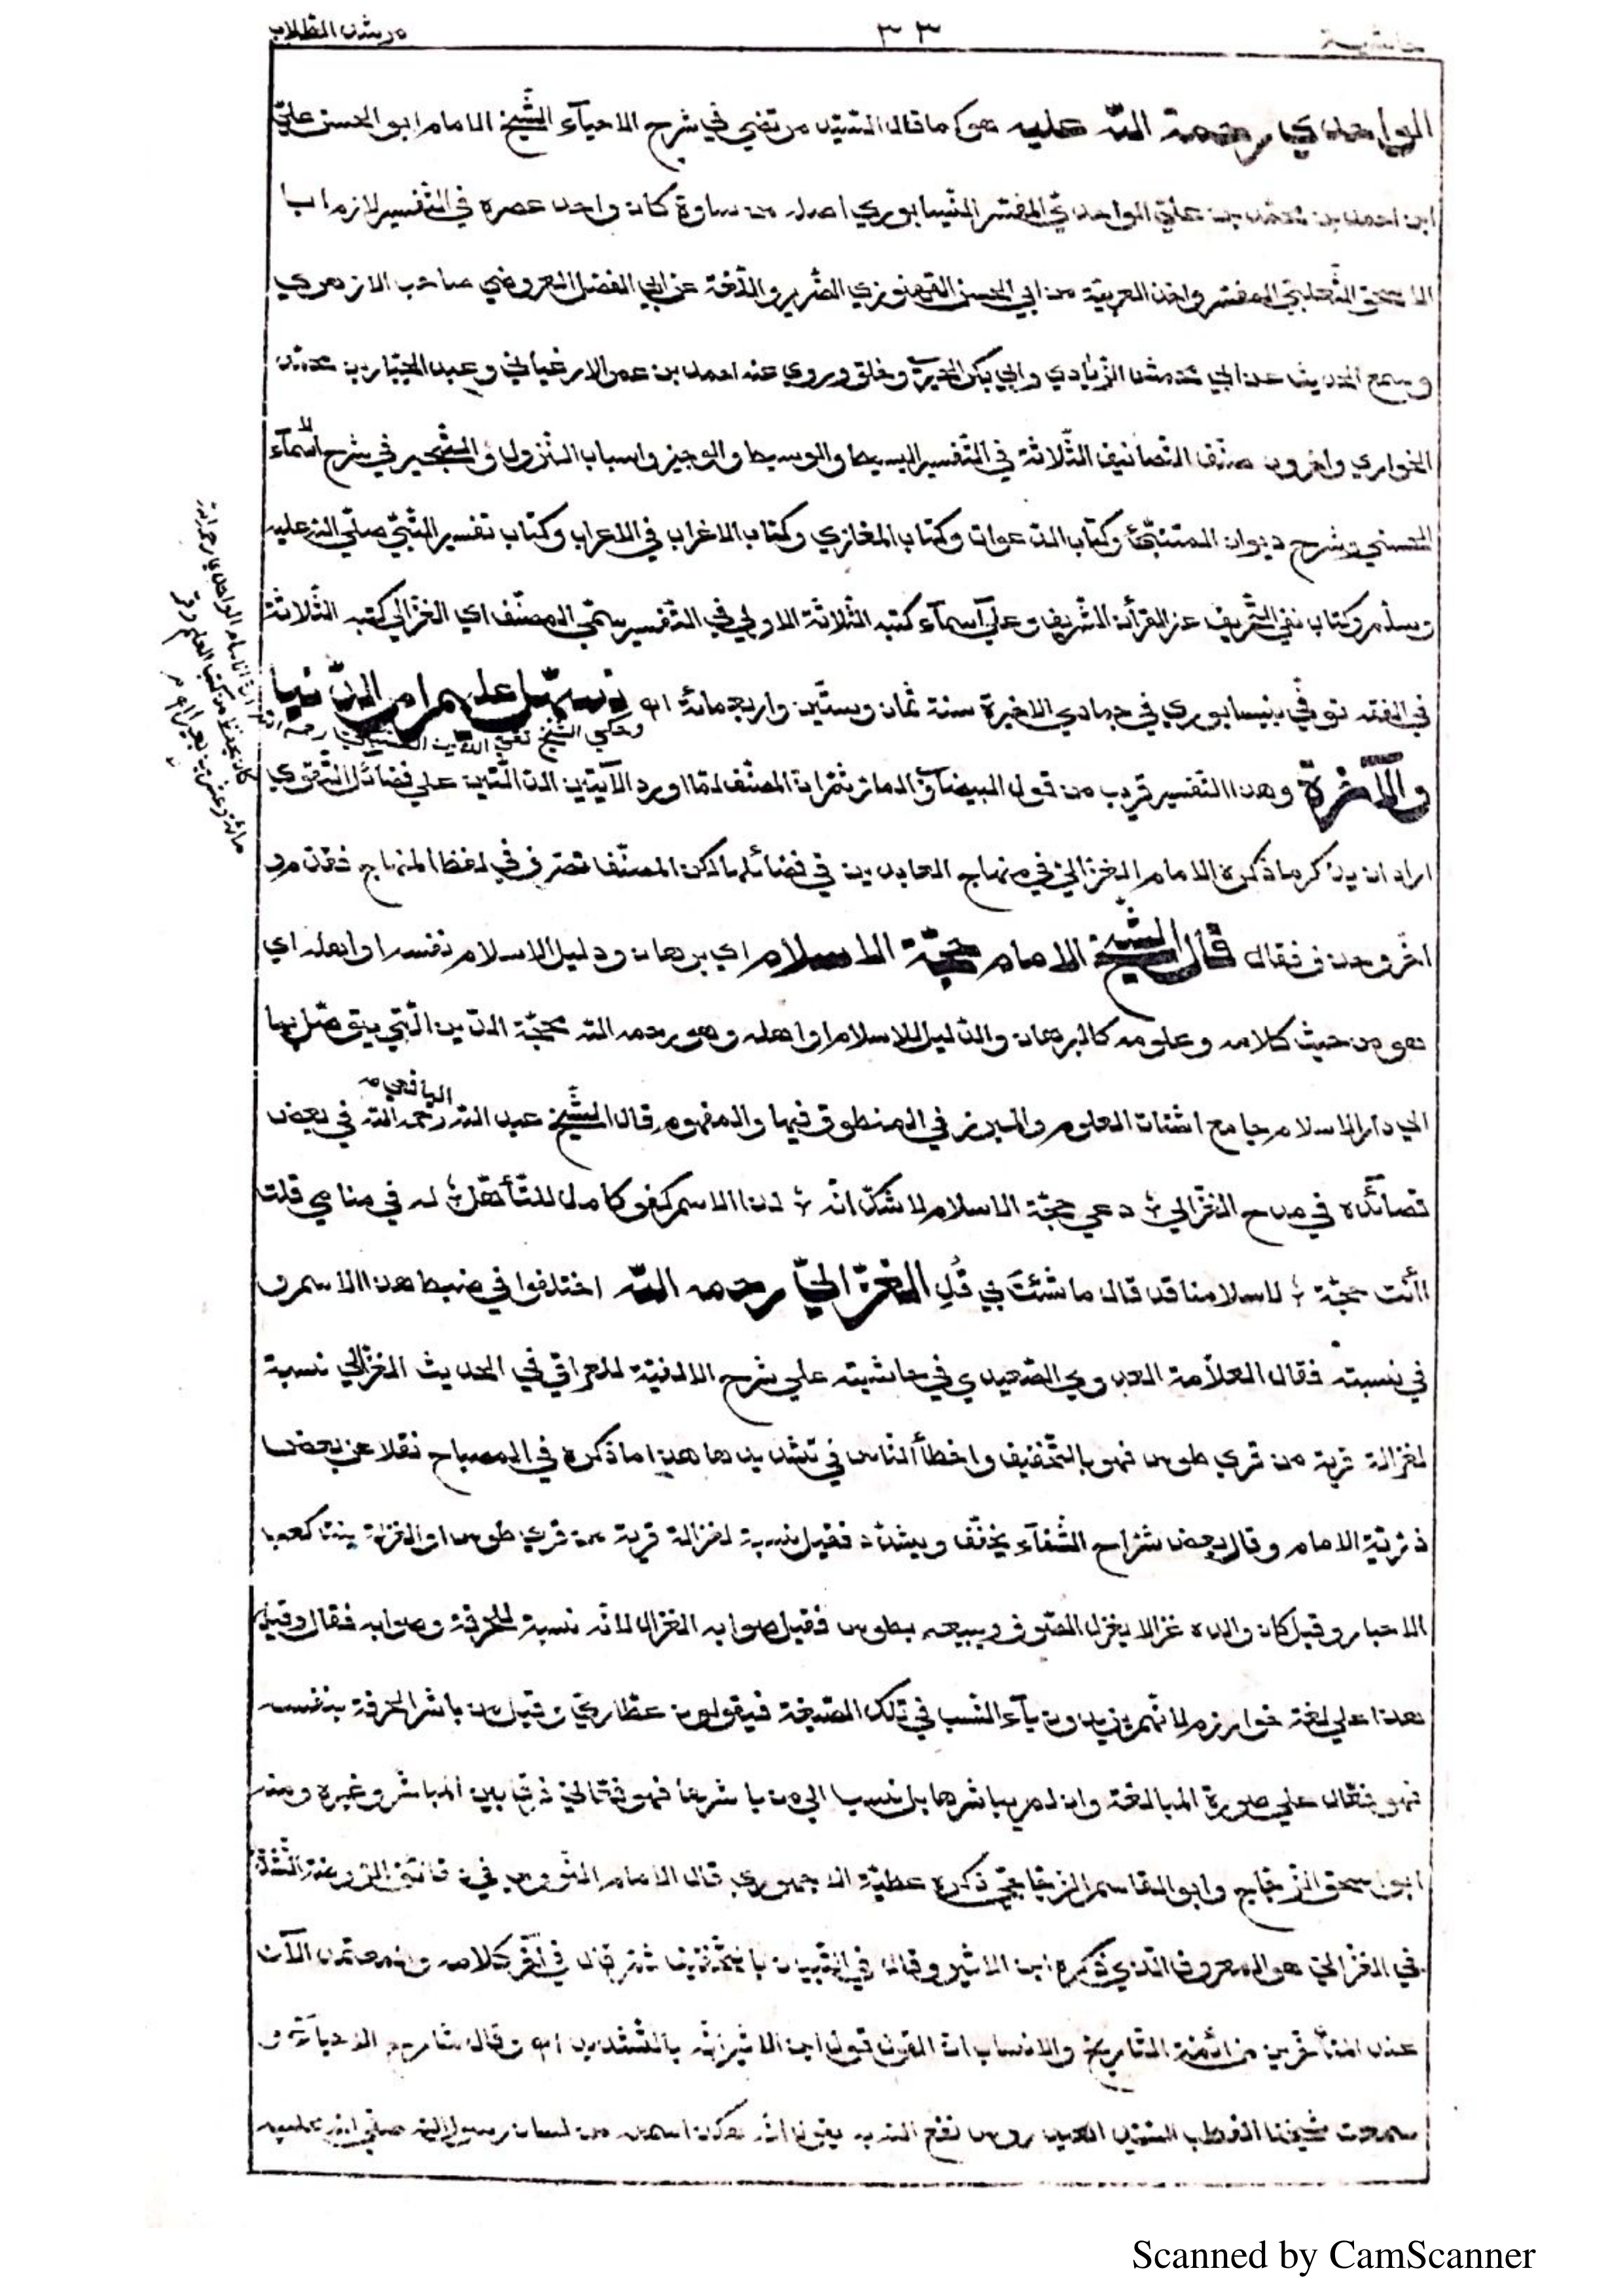 حاشية ٣٣ مرشد الطلاب
الواحدي رحمة الله عليه هو كما قال السيد مرتضي في شرح الاحيآء الشيخ الامام ابو الحسن علي
ابن احمد بن محمد بن علي الواحدي المفسر النيسابوري اصله من ساوة كان واحد عصره في التفسير لازم ابا
الاسحق الثعلبي المفسر واخذ العربية من ابي الحسن القهندزي الضرير واللغة عن ابي الفضل العروضي صاحب الازهري
وسمع الحديث عن ابي محمش الزيادي وابي بكر الحيري وخلق وروي عنه احمد بن عمر الارغياني وعبد الجبار بن محمد
الخواري واخرون صنف التصانيف الثلاثة في التفسير البسيط والوسيط والوجيز واسباب النزول والتحبير في شرح الاسمآء
الحسني وشرح ديوان المتنبي وكتاب الدعوات وكتاب المغازي وكتاب الاغراب في الاعراب وكتاب تفسير النبي صلي الله عليه
وسلم وكتاب نفي التحريف عن القرآن الشريف وعلي اسمآء كتبه الثلاثة الاولي في التفسير سمي المصنف اي الغزالي كتبه الثلاثة
في الفقه توفي بنيسابوري في جمادي الاخيرة سنة ثمان وستين واربعمائة اه تسهيل عليهم امر الدنيا
وحكي الشيخ تقي الدين رحمه الله
والآخرة وهذا التفسير قريب من قول البيضاوي المار ثم ان المصنف لما اورد الآيتين الدالتين علي فضائل التقوي
اراد ان يذكر ما ذكره الامام الغزالي في منهاج العابدين في فضائلها لكن المصنف تصرف في لفظ المنهاج فقدم و
اخر وحذف فقال قال الشيخ الامام حجة الاسلام اي برهان ودليل الاسلام نفسه او اهله اي
هو من حيث كلامه وعلومه كالبرهان والدليل للاسلام او اهله وهو رحمه الله محجة الدين التي يتوصل بها
الي دار الاسلام جامع اشتات العلوم والمبرز في المنطوق فيها والمفهوم قال الشيخ عبد الله اليافعي رحمه الله في بعض
قصائده في مدح الغزالي دعي حجة الاسلام لا شك انه لذا الاسم كفو كامل للتأهل له في منامي قلت
اانت حجة لاسلامنا قد قال ما شئت بي قل الغزالي رحمه الله اختلفوا في ضبط هذا الاسم و
في نسبته فقال العلامة العدوي الصعيدي في حاشيته علي شرح الالفية للعراقي في الحديث الغزالي نسبة
لغزالة قرية من قري طوس فهو بالتخفيف واخطأ الناس في تشديدها هذا ما ذكره في المصباح نقلا عن بعض
ذرية الامام وقال بعض شراح الشفآء يخفف ويشدد فقيل نسبة لغزالة قرية من قري طوس او الغزالة بنت كعب
الاحبار وقيل كان والده غزالا يغزل الصوف ويبيعه بطوس فقيل صوابه الغزال لانه نسبة للحرفة وصوابه فقال وقيل
هذا علي لغة خوارزم لانهم يزيدون يآء النسب في تلك الصيغة فيقولون عطاري وقيل من باشر الحرفة بنفسه
فهو فعال علي صورة المبالغة وان لم يباشرها بل نسب الي من باشرها فهو فعالي فرقا بين المباشر وغيره ومنه
ابو اسحق الزجاج وابو القاسم الزجاجي ذكره عطية الاجهوري قال الامام النووي في دقائق الروضة التشديد
في الغزالي هو المعروف الذي ذكره ابن الاثير وقال في التبيان بالتخفيف ثم قال في آخر كلامه والمعتمد الآن
عند المتأخرين من ائمة التاريخ والانساب ان القول قول ابن الاثير انه بالتشديد اه وقال شارح الاحيآء و
سمعت شيخنا القطب السيد العيدروس نفع الله به يقول انه هكذا اسمعه من لسان رسول الله صلي الله عليه